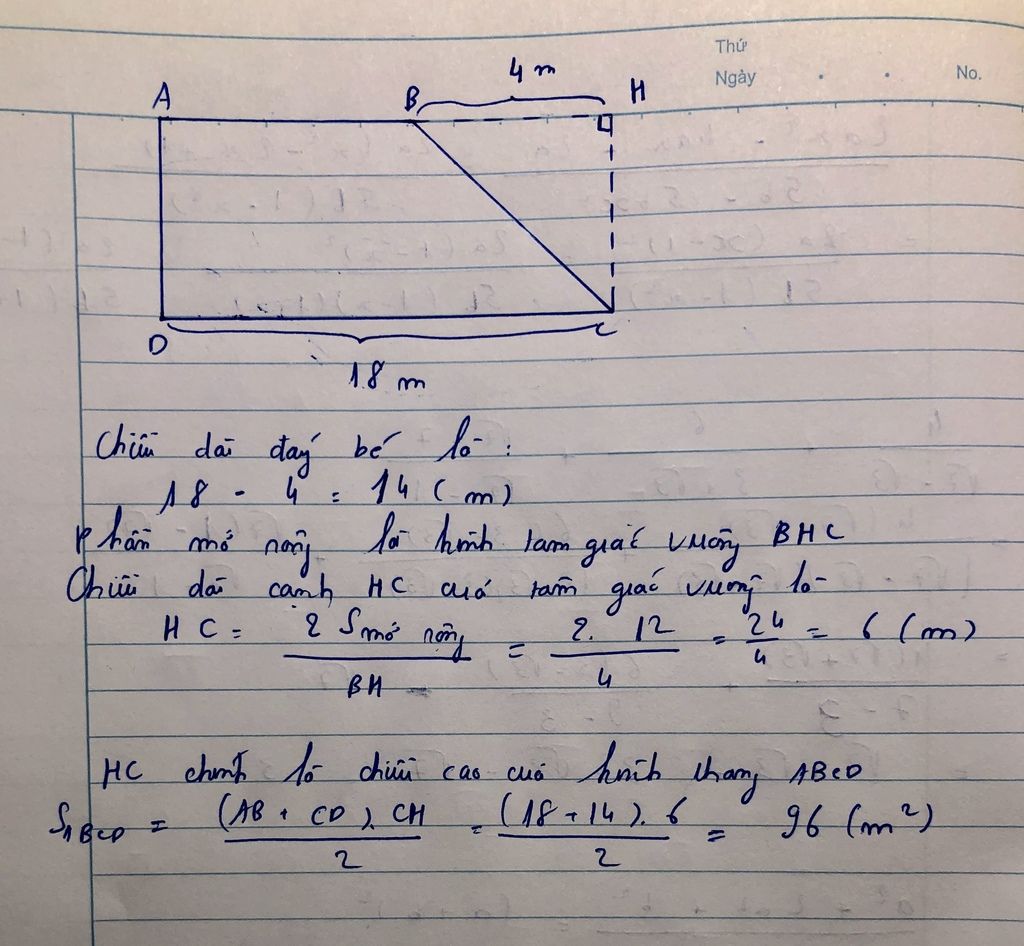 Thứ
Ngày . . No.
4 m
A B H
D C
18 m
Chiều dài đáy bé là :
18 - 4 = 14 ( m )
Phần mở rộng là hình tam giác vuông BHC
Chiều dài cạnh HC của tam giác vuông là
HC = 2 S mở rộng / BH = 2. 12 / 4 = 24 / 4 = 6 (m)
HC chính là chiều cao của hình thang ABCD
S ABCD = (AB + CD). CH / 2 = (18 + 14). 6 / 2 = 96 (m²)